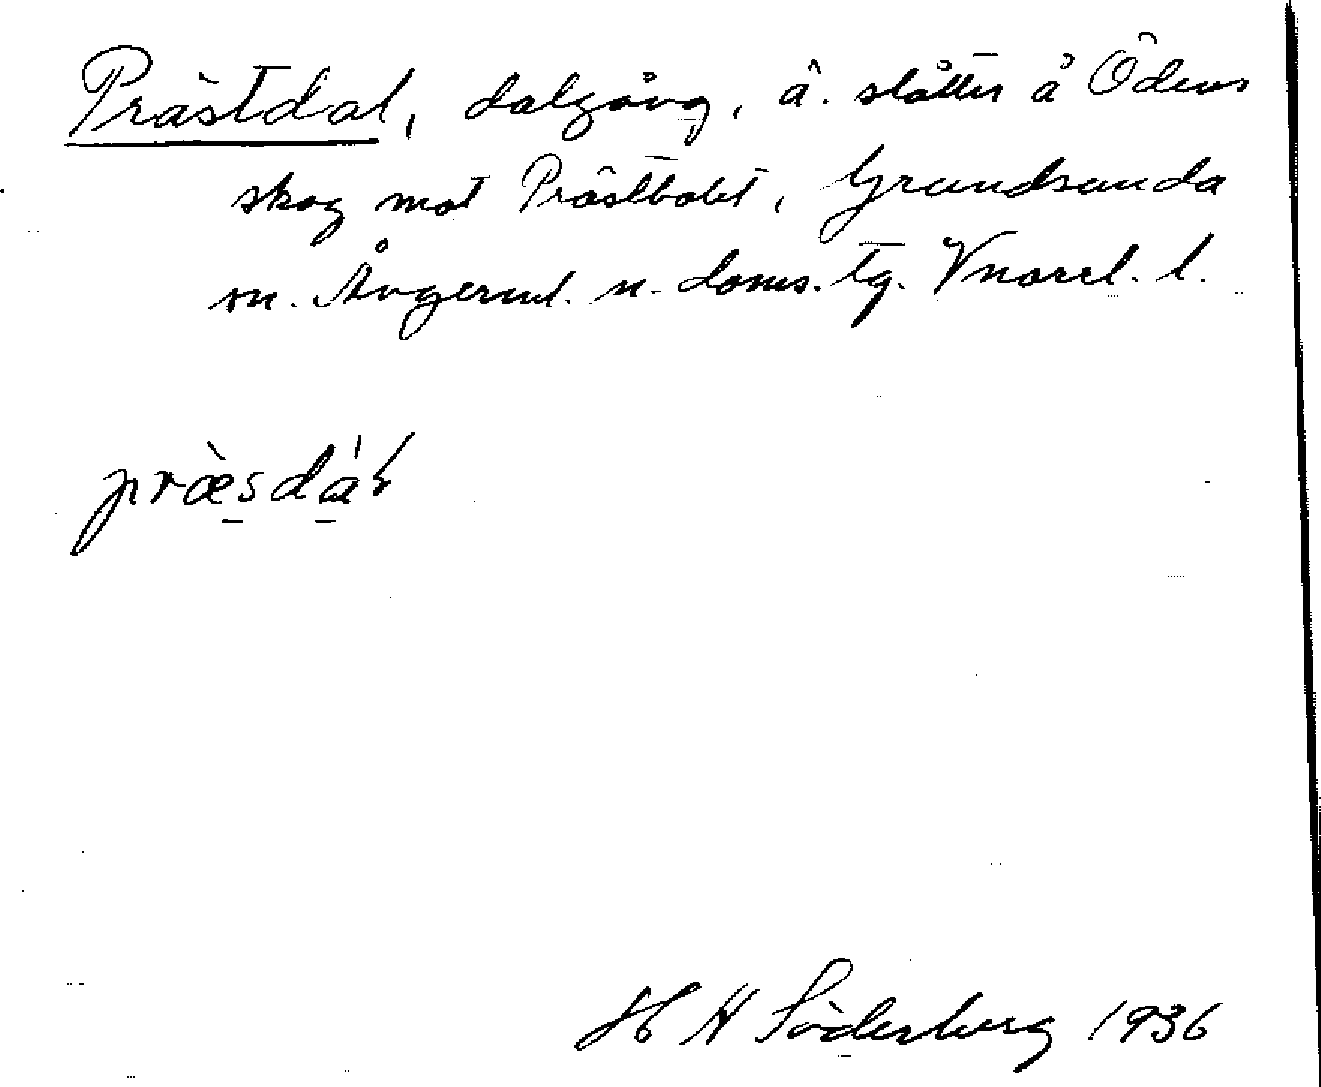 Prästdal, dalgång, ä. slåtter å Ödens
skog mot Prästbolet, Grundsunda
sn. Ångerml. n. doms. tg. Vnorrl. l.
præsdàɫ
H H Söderberg 1936